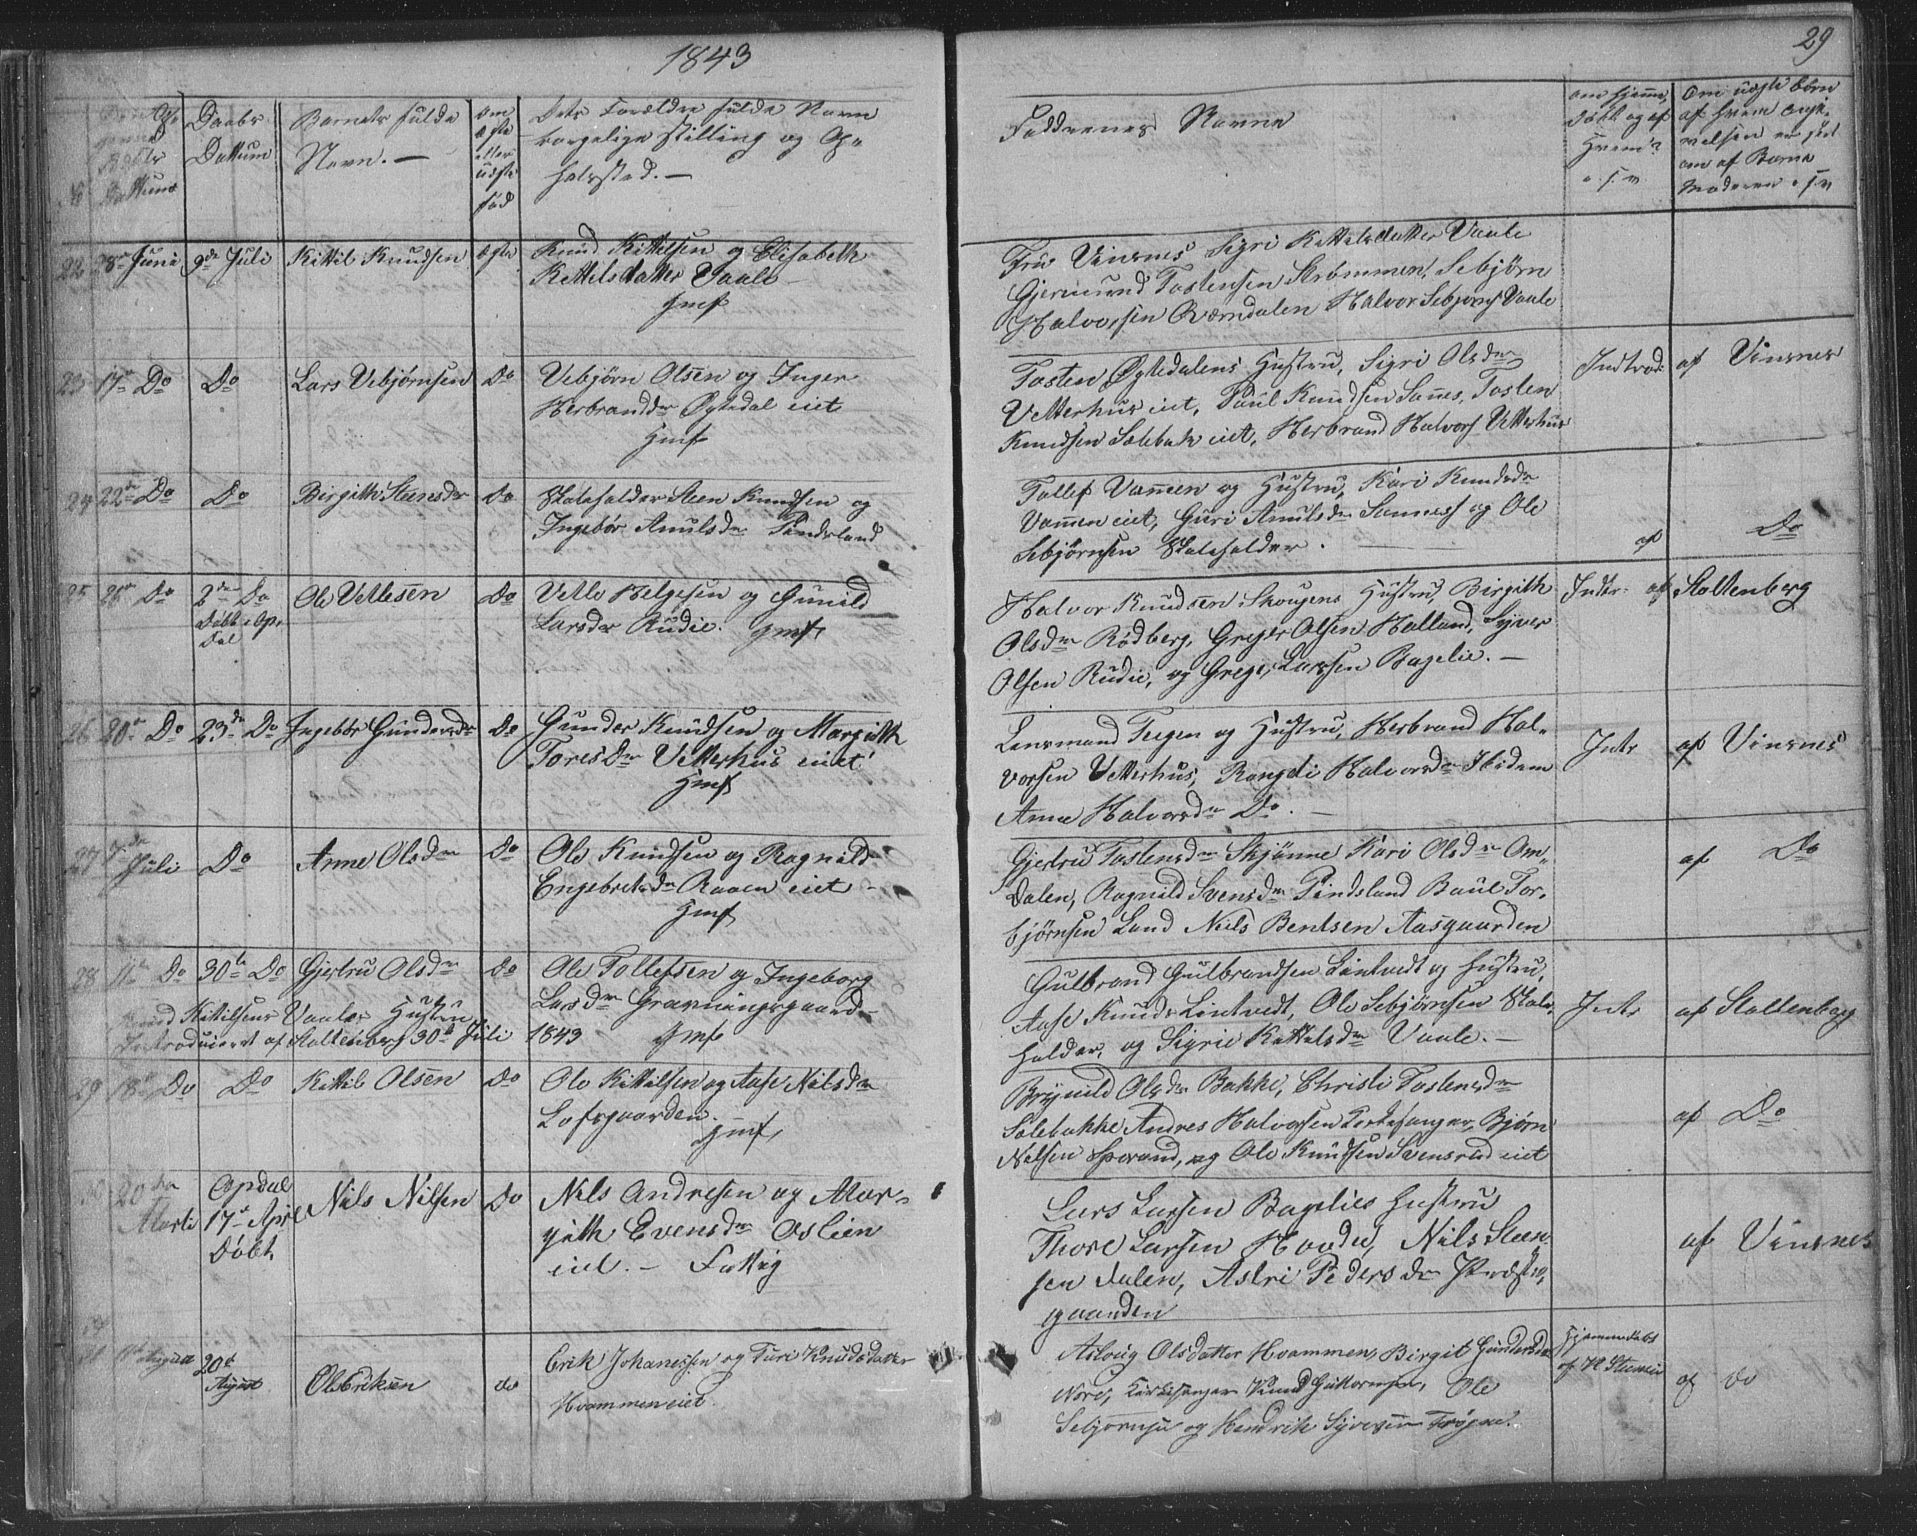 1843
29
Daabs
Dattum
Barnets fulde
Navn. —
om
ægte
eller
uægte
fød
Dets Forældre fulde Navn
borgelige stilling og Op-
holssted. —
Faddernes Navne
om hjemme
døbt og af
Hvem?
Om uægte børn
af hvem
om af Barne
Moderen
22 28de Juni 9de Juli Kittil Knudsen ægte
Knud Kittilsen og Elisabeth
Kettelsdatter Vaale
Hmf
Fru Vinsnes, Sigri Kettelsdatter Vaale
Gjermund Tostensen Strømmen, Sebjørn
Halvorsen Qværndalen Halvor Sebjørns Vaale
23 17de Do Do Lars Vebjørnsen Do
Vebjørn Olsen og Inger
Herbrandsdr Øgtedal eiet
Hmf
Tosten Øgtedalens Hustru, Sigri Olsdr
Vetterhus eiet, Paul Knudsen Sønes, Tosten
Knudsen Solebak eiet, Herbrand Halvors Vetterhus
Introd: af Vinsnes
24 22de Do Do Birgith Steensdr Do
Skoleholder Steen Knudsen og
Ingebør Amulsdr Pindsland
Tollef Vammen og Hustru, Kari Knudsdr
Vammen eiet, Guri Amulsdr Sønnes og Ole
Sebjørnsen Skoleholder. —
af Do
25 26de Do 2de Do Ole Vetlesen Do
Døbt i Op-
dal
Vetle Helgesen og Gunild
Larsdr Rudie. Hmf
Halvor Knudsen Skougens Hustru, Birgith
Olsdr Rødberg, Greger Olsen Holland, Syver
Olsen Rudie, og Greger Larsen Bagelie. —
Intr: af Stoltenberg
26 20de Do 23de Do Ingebør Gundersdr Do
Gunder Knudsen og Margith
Toresdr Vetterhus eiet
Hmf
Lensmand Teigen og Hustru, Herbrand Hal-
vorsen Vetterhus, Rangdi Halvorsdr Ibidem
Anne Halvorsdr Do. —
Intr af Vinsnes
27 7de Juli Do Anne Olsdr Do
Ole Knudsen og Ragnild
Engebretsdr Raaen eiet —
Hmf
Gjertru Tostensdr Skjønne Kari Olsdr Om-
dalen, Ragnild Svensdr Pindsland Baul Tor-
bjørnsen Lund Niels Bentsen Aasgaarden
af Do
28 11te Do 30te Do Gjertru Olsdr Do
Ole Tollefsen og Ingeborg
Larsdr Gravningsgaard —
Hmf
Gulbrand Gulbrandsen Lintvedt og Hustru,
Aase Knuds Lintvedt, Ole Sebjørnsen Skole-
holder, og Sigrie Kettelsdr Vaale. —
Intr af Stoltenberg
Knud Kittilsens Vaales Hustru
Introduceret af Stoltenberg 30te Juli 1843
29 18de Do Do Kittil Olsen Do
Ole Kittilsen og Aase Nilsdr
Lofsgaarden.
Hmf
Brynild Olsdr Bakke, Christi Tostensdr
Solebakke Andres Halvorsen Kirkesanger, Bjørn
Nilsen Sporand, og Ole Knudsen Svensrud eiet
af Do
30 20de Marts Opdal
17de April
Døbt
Nils Nilsen Do
Nils Andresen og Mar-
gith Evensdr Oslien
eiet. — Fattig
Lars Larsen Bagelies Hustru
Thore Larsen Hovde, Nils Steen-
sen Dalen, Astri Pedersdr Præste-
gaarden
af Vinsnes
31 August 20de
August
Ole Eriksen do
Erik Johanessen og Turi Knudsdatter
Hvammen eiet.
Aslaug Olsdatter Hvammen, Birgit Gundersdr
Nore, Kirkesanger Knud Guttormsen, Ole
Sebjørnsen og Hendrik Syversen Frøgne.
Hjemmedøbt
af
af do